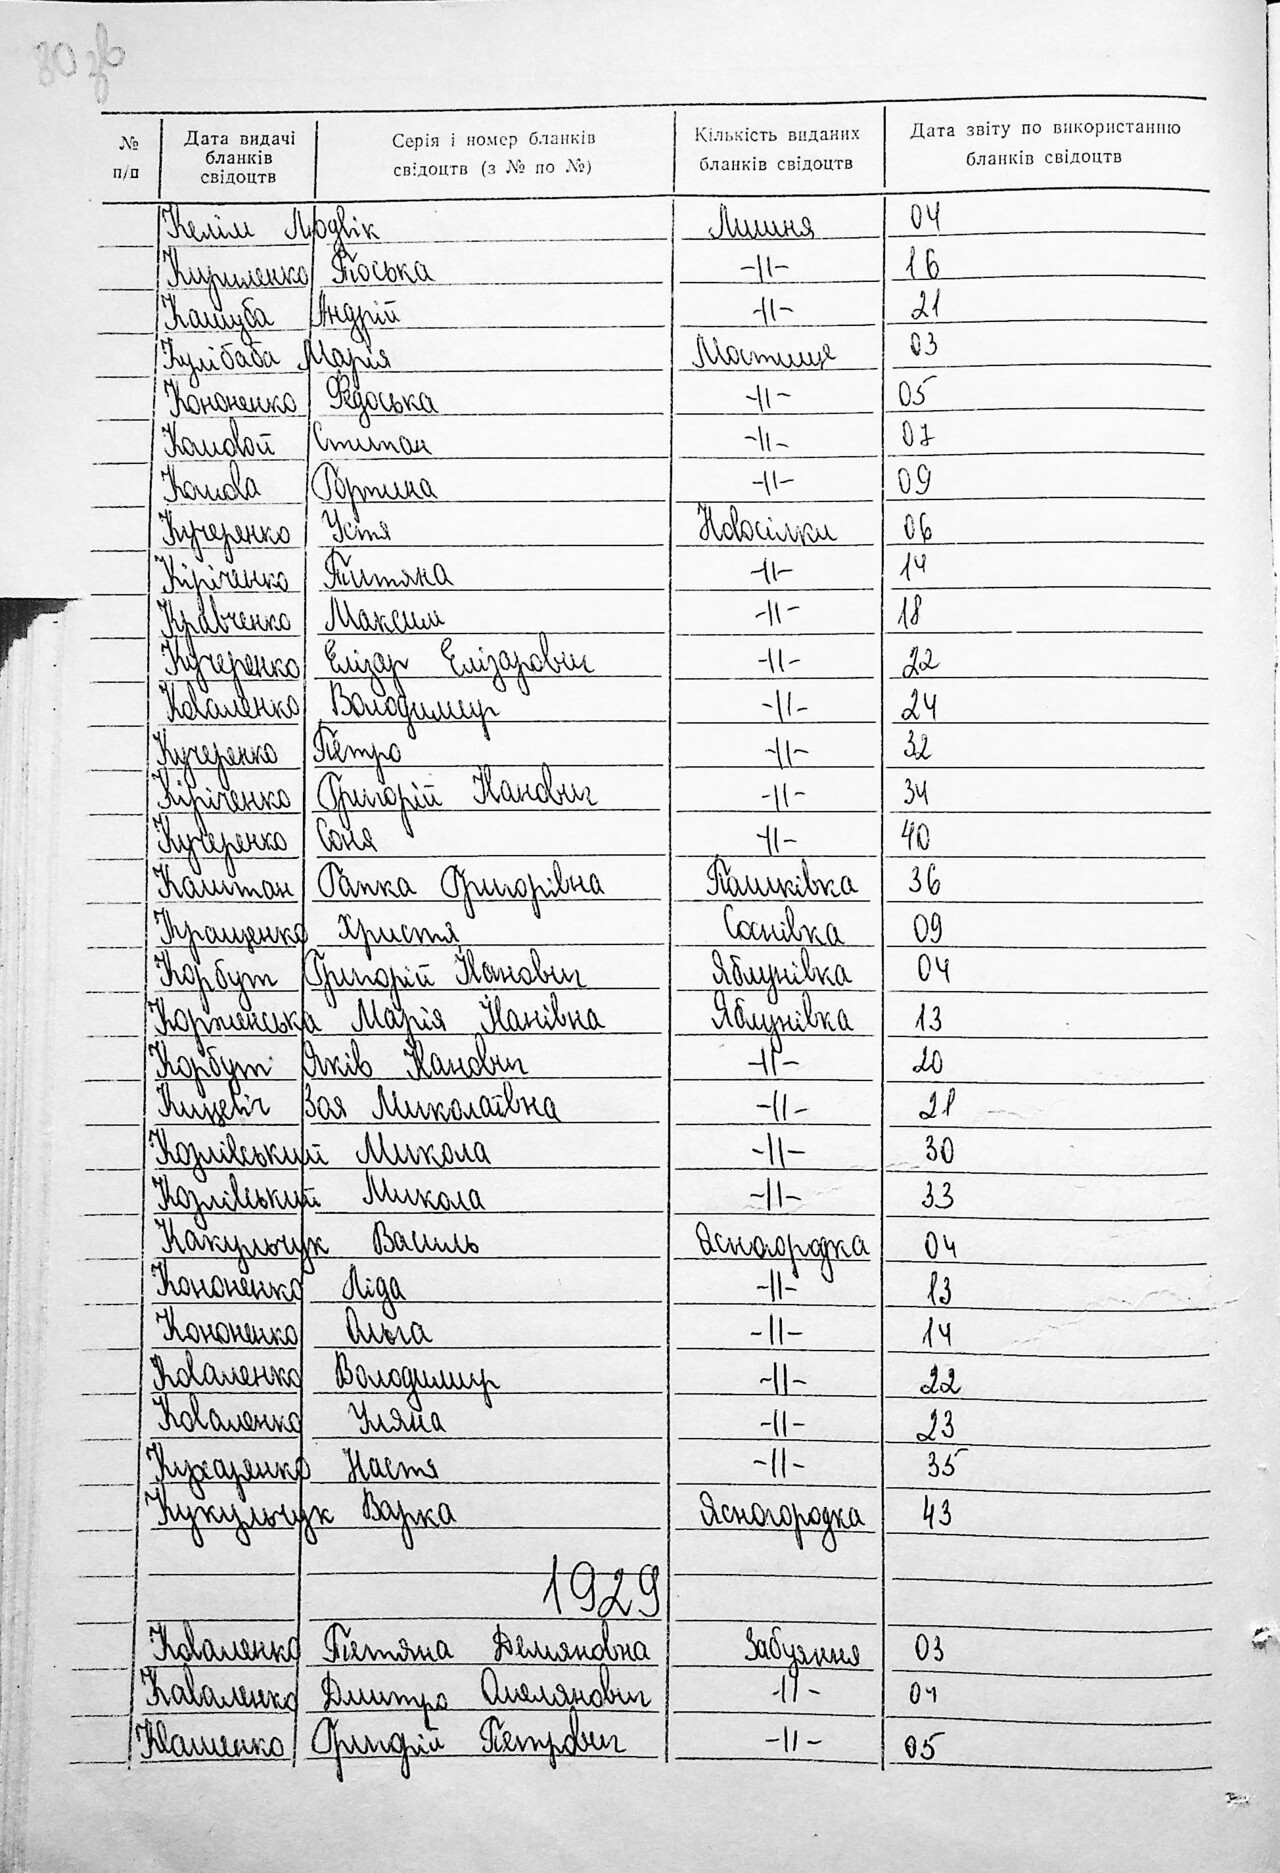 80 зв
№ п/п | Дата видачі бланків свідоцтв | Серія і номер бланків свідоцтв (з № по №) | Кількість виданих бланків свідоцтв | Дата звіту по використанню бланків свідоцтв
Келім Людвік | Лишня | 04
Кириленко Тоська | -//- | 16
Кашуба Андрій | -//- | 21
Кулібаба Марія | Мостище | 03
Кононенко Федоська | -//- | 05
Кошовой Степан | -//- | 07
Кошова Горпина | -//- | 09
Кучеренко Устя | Новосілки | 06
Кіріченко Титяна | -//- | 14
Кравченко Максим | -//- | 18
Кучеренко Елізар Елізарович | -//- | 22
Коваленко Володимир | -//- | 24
Кучеренко Петро | -//- | 32
Кіріченко Григорій Іванович | -//- | 34
Кучеренко Соня | -//- | 40
Каштан Гапка Григорівна | Пашківка | 36
Кращенко Христя | Соснівка | 09
Корбут Григорій Іванович | Яблунівка | 04
Корженська Марія Іванівна | Яблунівка | 13
Корбут Яків Іванович | -//- | 20
Зоя Миколаївна | -//- | 21
Козлівський Микола | -//- | 30
Козлівський Микола | -//- | 33
Какульчук Василь | Ясногородка | 04
Кононенко Ліда | -//- | 13
Кононенко Ольга | -//- | 14
Коваленко Володимир | -//- | 22
Коваленко Уляна | -//- | 23
Кухаренко Настя | -//- | 35
Кукульчук Варка | Ясногородка | 43
1929
Коваленко Тетяна Демяновна | Забуяння | 03
Каваленко Дмитро Омелянович | -//- | 04
Григорій Петрович | -//- | 05